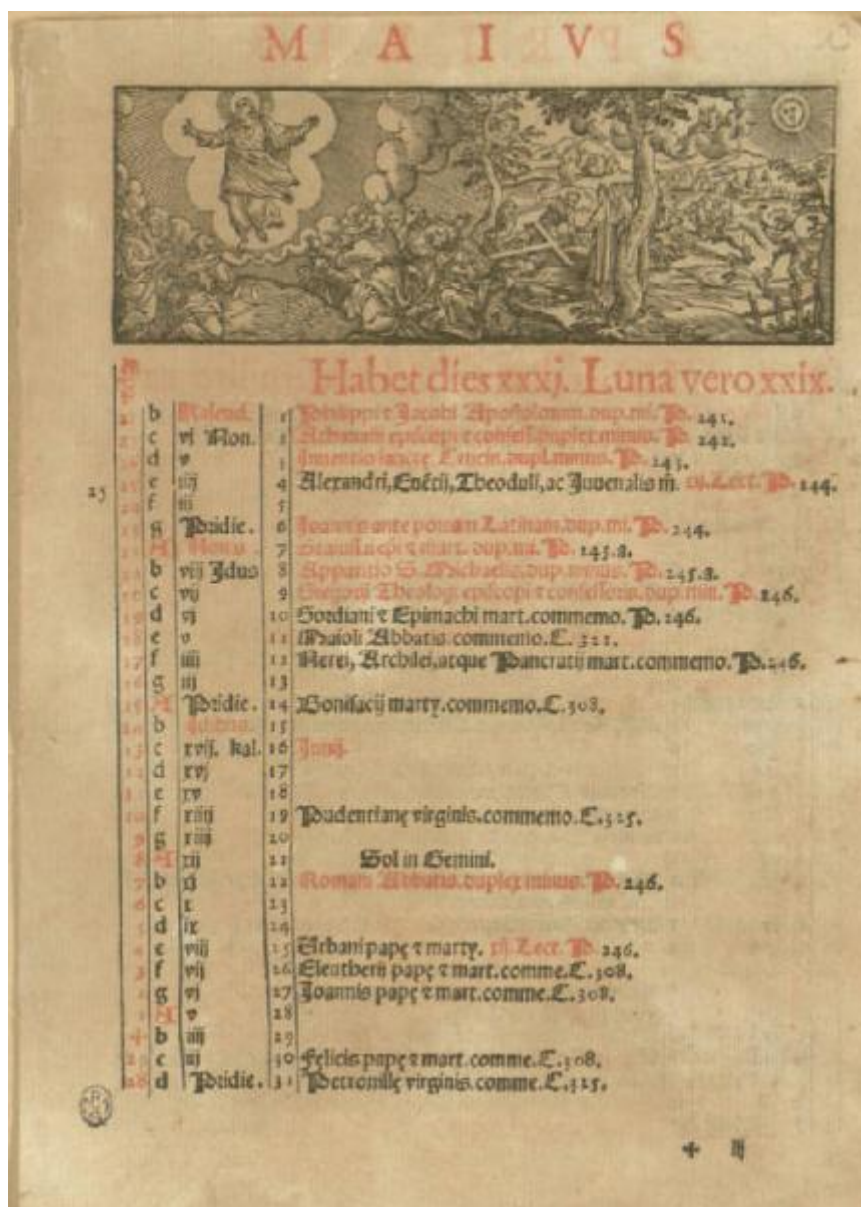 M A I V S
Habet dies xxxj. Luna vero xxix.
b Kalend. 1 Philippi ⁊ Jacobi Apostolorum. dup. mi. P. 241.
c vi Non. 2 Athanasii episcopi ⁊ confess. duplex minus. P. 242.
d v 3 Inventio sancte Crucis. dupl. minus. P. 243.
25 e iiij 4 Alexandri, Evẽtij, Theoduli, ac Juvenalis m̃. xij. Lect. P. 244.
f iij 5
g Pridie. 6 Joannis ante portam Latinam. dup. mi. P. 244.
A Nonis 7 Stanislai epi ⁊ mart. dup. mi. P. 245.a.
b viij Idus 8 Apparitio S. Michaelis. dup. minus. P. 245.a.
c vij 9 Gregorii Theologi episcopi ⁊ confessoris. dup. min. P. 246.
d vj 10 Gordiani ⁊ Epimachi mart. commemo. P. 246.
e v 11 Maioli Abbatis. commemo. C. 321.
17 f iiij 12 Nerei, Archilei, atque Pancratij mart. commemo. P. 246.
16 g iij 13
15 A Pridie. 14 Bonifacij marty. commemo. C. 308.
b Idibus. 15
13 c xvij. kal. 16 Junij.
12 d xvj 17
e xv 18
10 f xiiij 19 Pudentianę virginis. commemo. C. 325.
9 g xiij 20
8 A xij 21 Sol in Gemini.
7 b xj 22 Romani Abbatis. duplex minus. P. 246.
6 c x 23
5 d ix 24
4 e viij 25 Urbani papę ⁊ marty. xij. Lect. P. 246.
3 f vij 26 Eleutherii papę ⁊ mart. comme. C. 308.
g vj 27 Joannis papę ⁊ mart. comme. C. 308.
1 A v 28
+ b iiij 29
29 c iij 30 Felicis papę ⁊ mart. comme. C. 308.
28 d Pridie. 31 Petronillę virginis. comme. C. 325.
+ iij